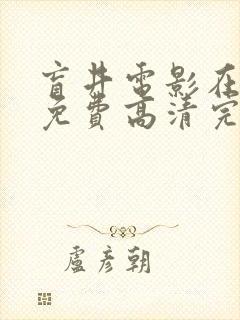 盲井電影在
免費高清完
盧彥朝